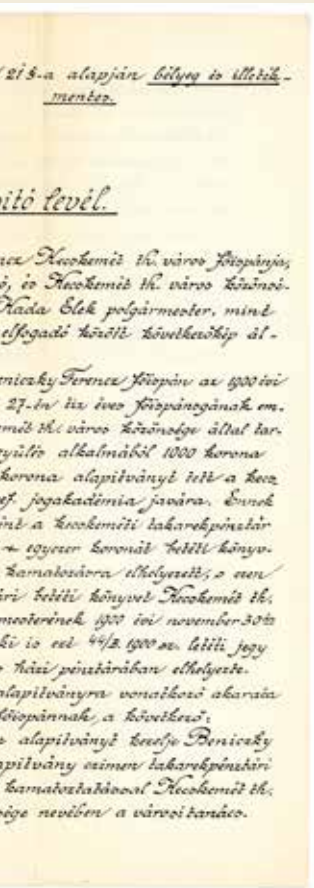 21 §-a alapján bélyeg és illeték-
mentes.
ító levél.
encz Kecskemét th. város főispánja,
ó, és Kecskemét th. város közönsé-
Kada Elek polgármester, mint
elfogadó között következőkép ál-
eniczky Ferencz főispán az 1900 évi
27-én tiz éves főispánságának em-
mét th. város közönsége által tar-
gyülés alkalmából 1000 korona
korona alapítványt tett a kecs
ref. jogakadémia javára. Ennek
int a kecskeméti takarékpénztár
egyezer koronát betéti könyv-
kamatozásra elhelyezett, s ezen
ári betéti könyvet Kecskemét th.
mesterének 1900 évi november 30án
ki is ezt 44/B. 1900 sz. letéti jegy
s házi pénztárában elhelyezte.
alapítványra vonatkozó akarata
főispánnak, a következő:
z alapítványt kezelje Beniczky
apítvány czimen takarékpénztári
kamatoztatással Kecskemét th.
sége nevében a városi tanács.